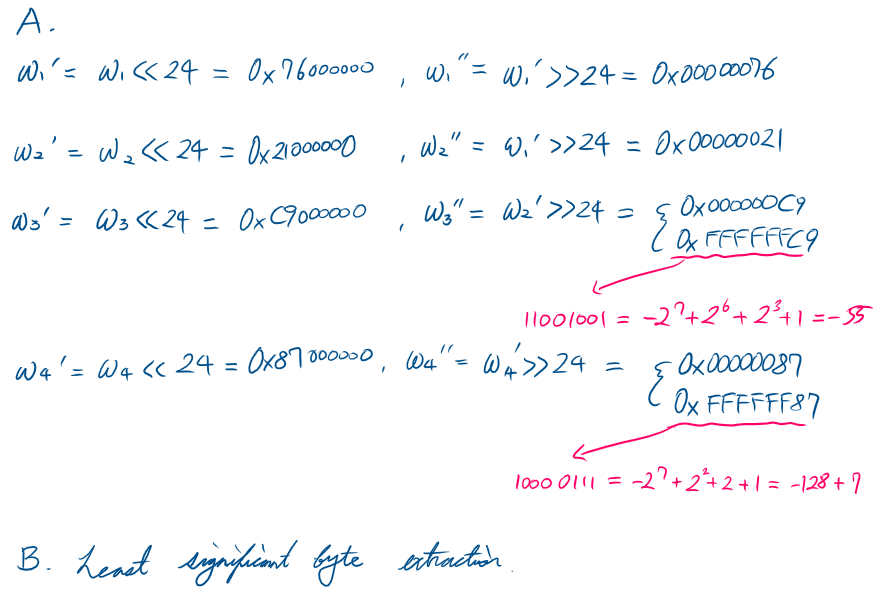 A.
ω₁' = ω₁ << 24 = 0x76000000 , ω₁'' = ω₁' >> 24 = 0x00000076
ω₂' = ω₂ << 24 = 0x21000000 , ω₂'' = ω₁' >> 24 = 0x00000021
ω₃' = ω₃ << 24 = 0xC9000000 , ω₃'' = ω₂' >> 24 = { 0x000000C9
0x FFFFFFC9
11001001 = -2⁷ + 2⁶ + 2³ + 1 = -55
ω₄' = ω₄ << 24 = 0x87000000 , ω₄'' = ω₄' >> 24 = { 0x00000087
0x FFFFFF87
10000111 = -2⁷ + 2² + 2 + 1 = -128 + 7
B. Least significant byte extraction.